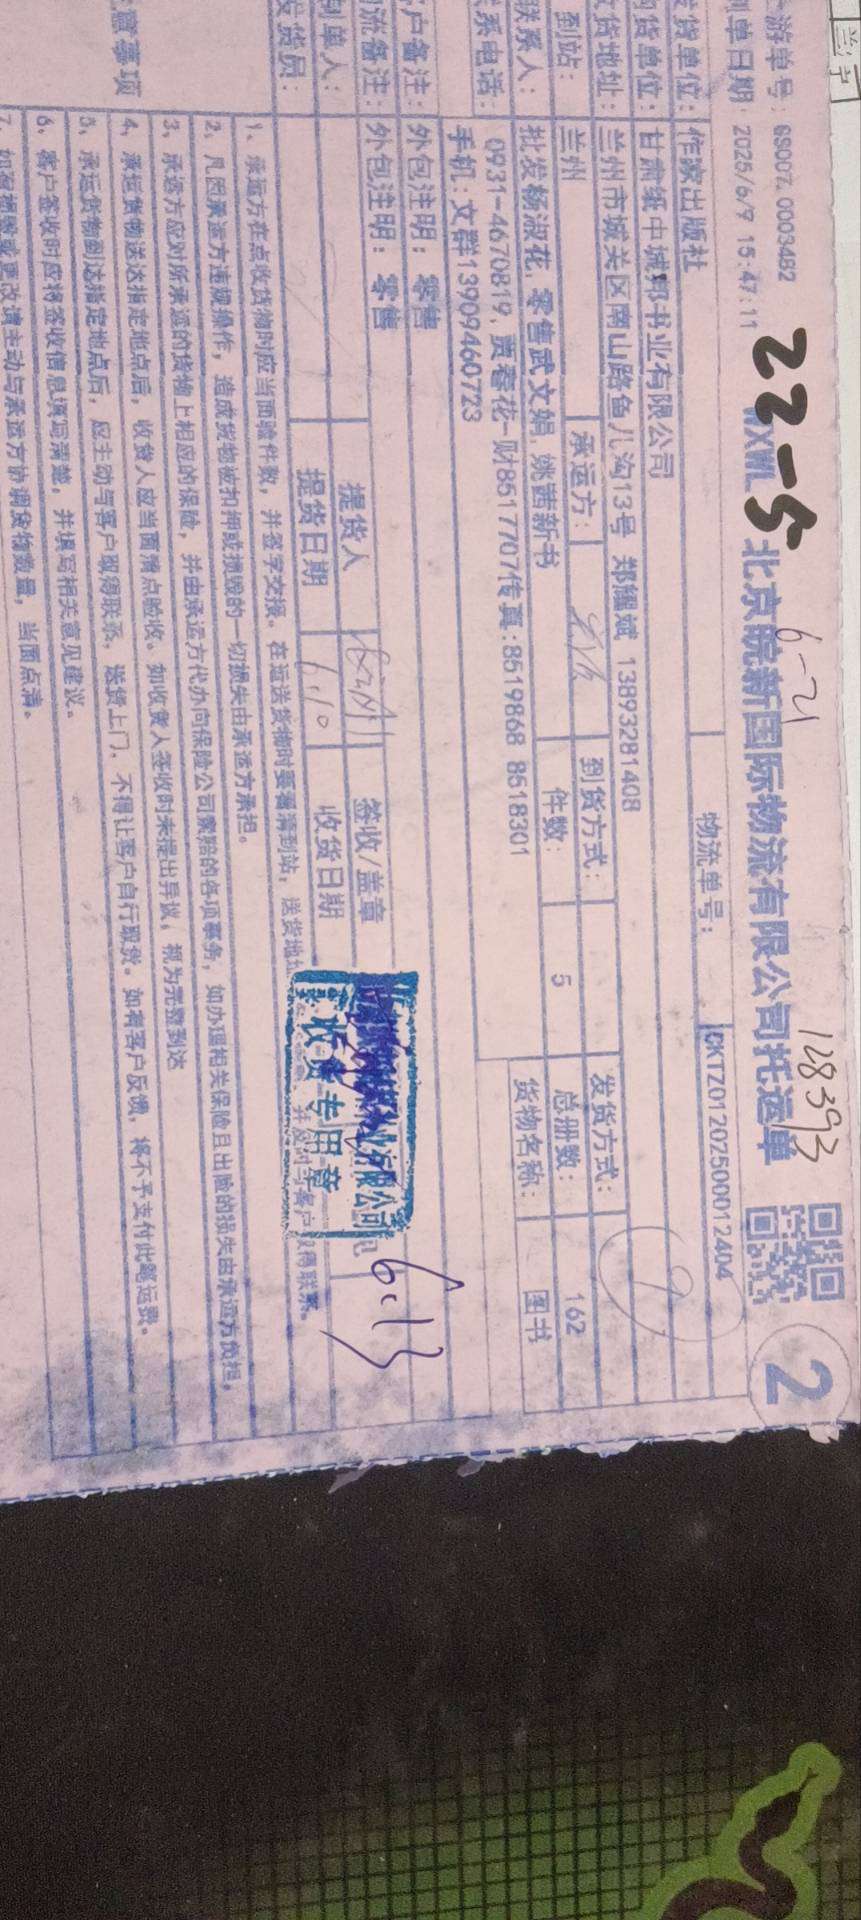 兰宁
22-5
6-21
128393
WXWL 北京皖新国际物流有限公司托运单
2
游单号：GS00Z 0003482
制单日期：2025/6/9 15:47:11
物流单号：
CKTZ01202500012404
发货单位：作家出版社
购货单位：甘肃纸中城邦书业有限公司
收货地址：兰州市城关区南山路鱼儿沟13号 郑耀斌 13893281408
到货方式：
发货方式：
到站：兰州
承运方：
件数：5
总册数：162
联系人：批发杨淑花, 零售武文娟, 姚茜新书
货物名称：图书
联系电话：0931-4670819, 贾春花-财8517707传真:8519868 8518301
手机:文群13909460723
客户备注：外包注明：零售
物流备注：外包注明：零售
制单人：
提货人
签收/盖章
发货员：
提货日期
6.10
收货日期
业有限公司
收货专用章
6.13
注意事项
1、承运方在点收货物时应当面验件数，并签字交接。在运送货物时要看清到站，送货地址
并及时与客户取得联系。
2、凡因承运方违规操作，造成货物被扣押或损毁的一切损失由承运方承担。
3、承运方应对所承运的货物上相应的保险，并由承运方代办向保险公司索赔的各项事务，如办理相关保险且出险的损失由承运方负担。
4、承运货物送达指定地点后，收货人应当面清点验收。如收货人签收时未提出异议，视为完整到达
5、承运货物到达指定地点后，应主动与客户取得联系，送货上门，不得让客户自行取货。如有客户反馈，将不予支付此笔运费。
6、客户签收时应将签收信息填写清楚，并填写相关意见建议。
7、如有损毁或更改请主动与承运方协调货物数量，当面点清。